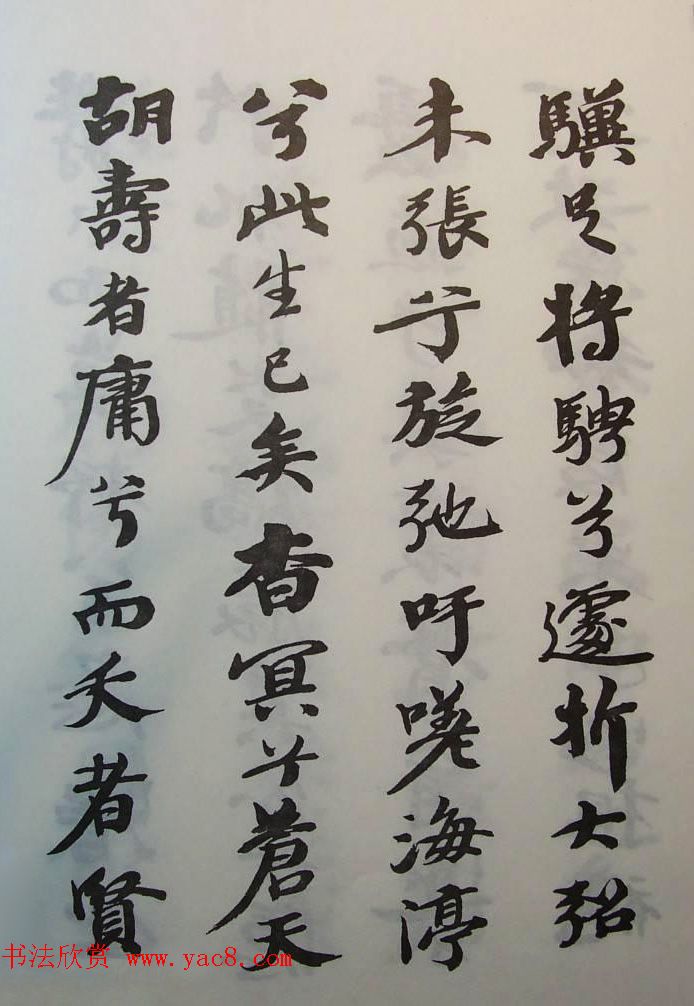 驥足将騁兮遽折大弨
未張兮旋弛吁嗟海渟
兮此生已矣杳冥兮蒼天
胡壽者庸兮而夭者賢
书法欣赏 www.yac8.com